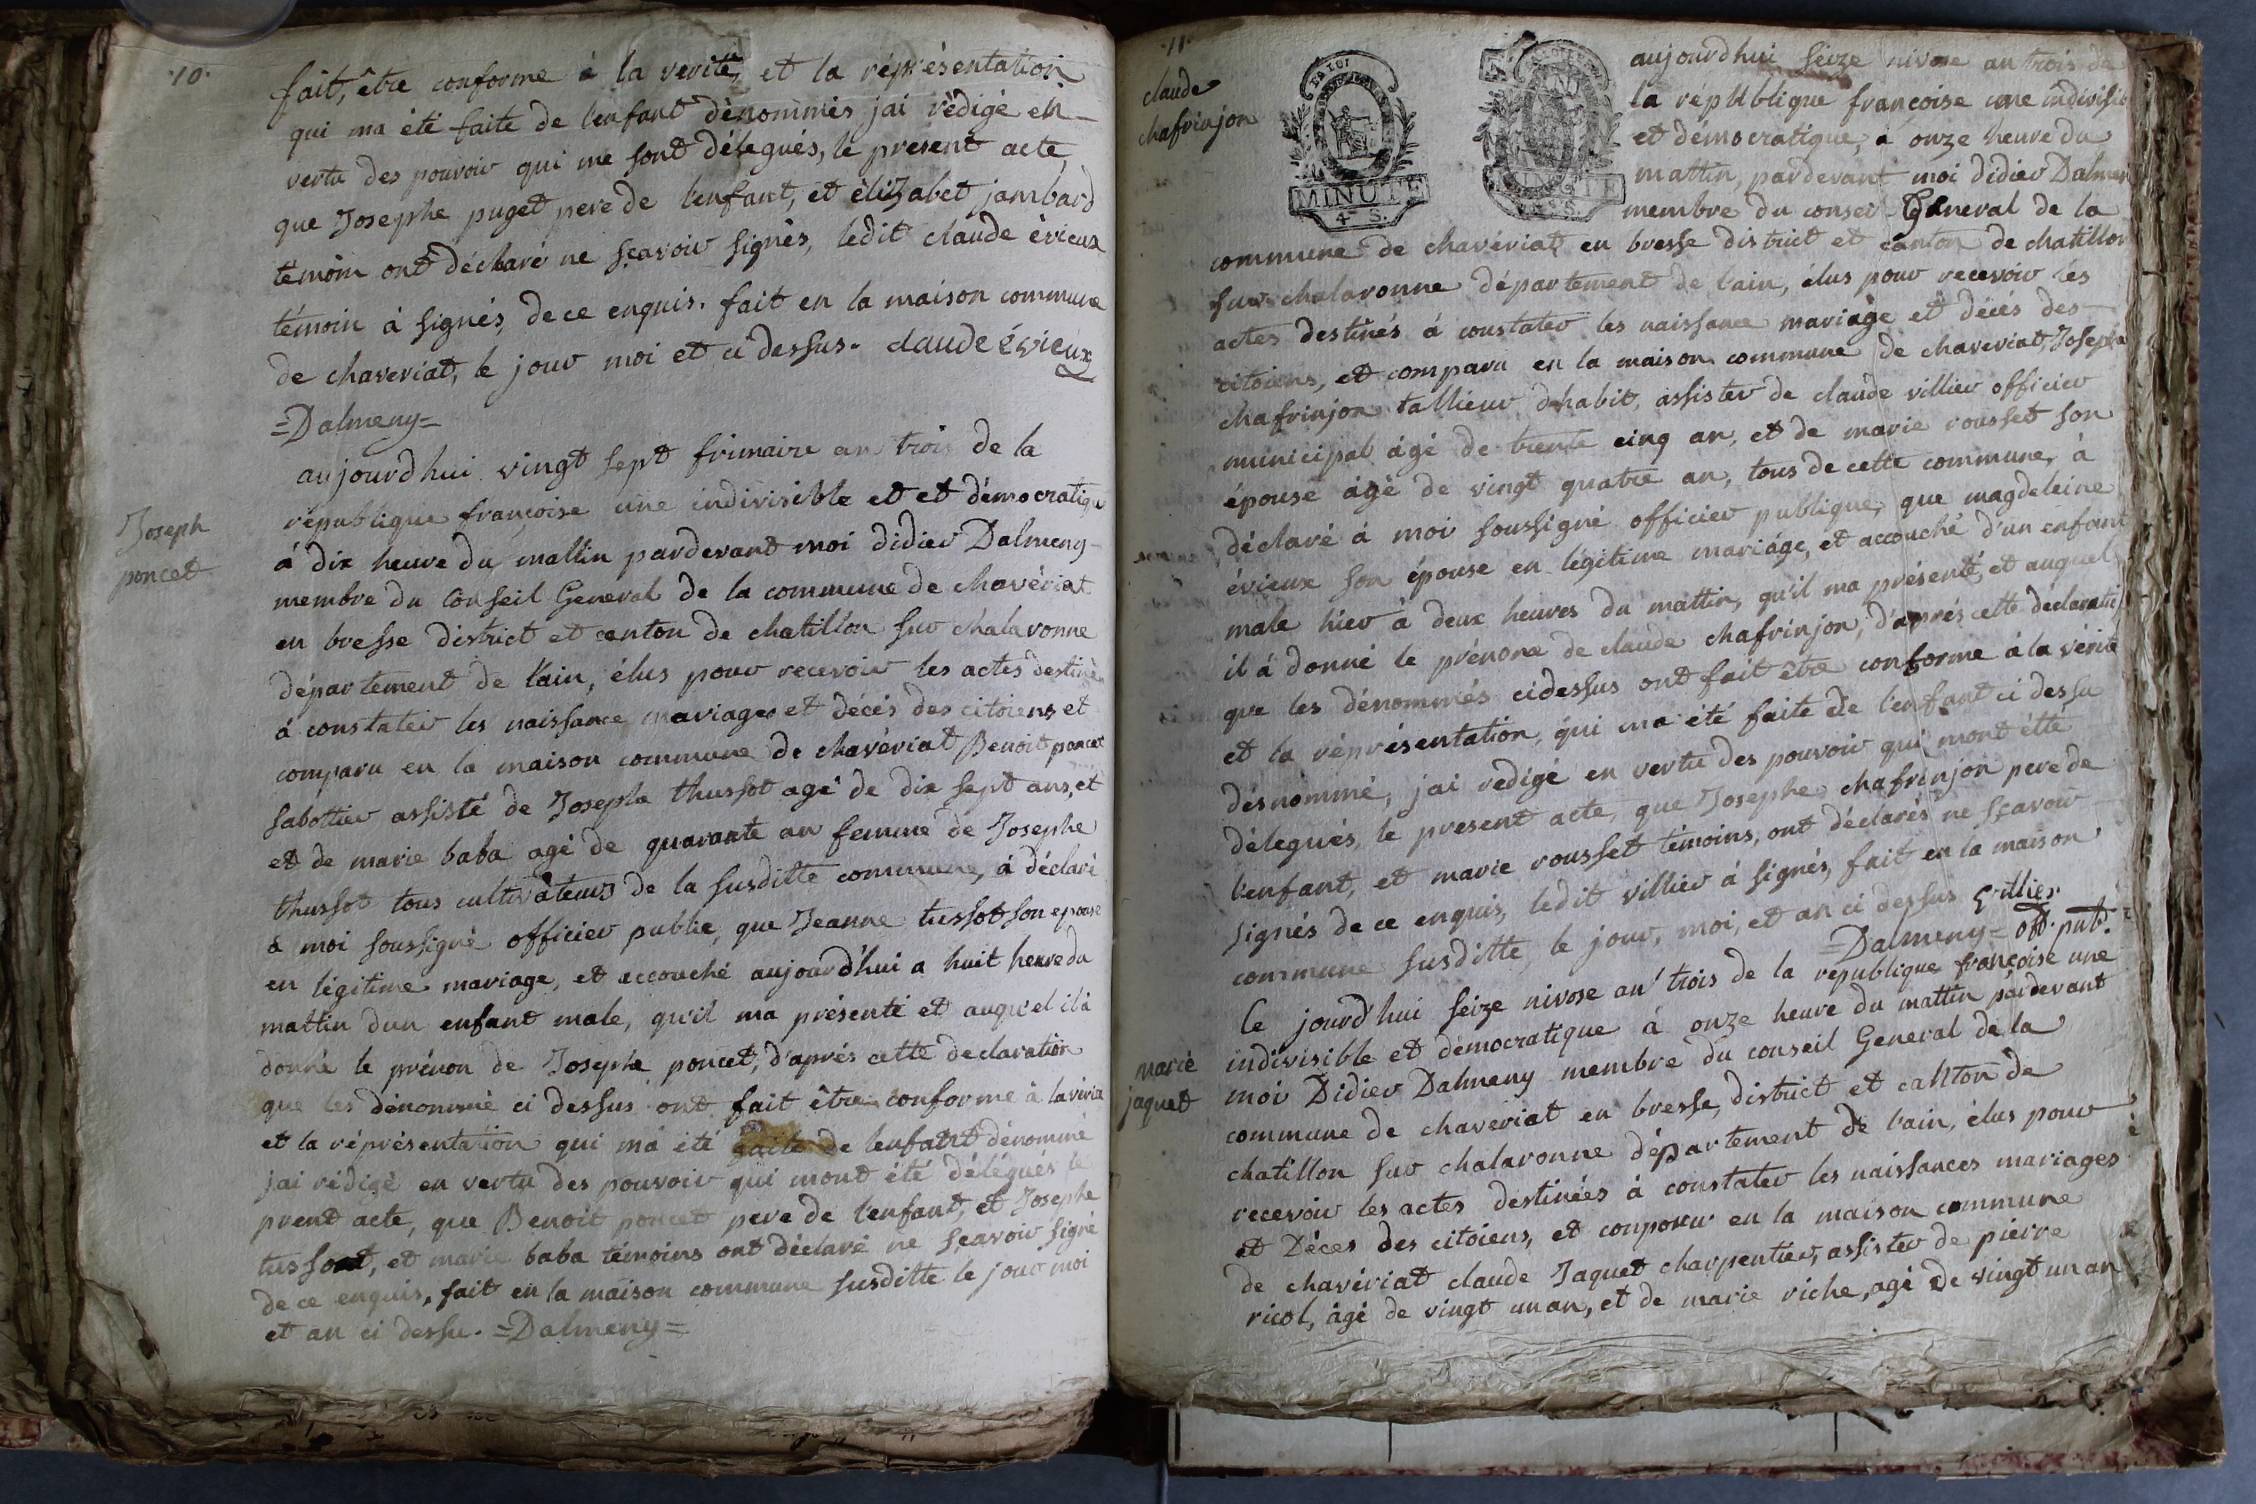 10.
fait, être conforme à la verité, et la réprésentation
qui ma été faite de l'enfant dénommés jai rédigé en
vertu des pouvoir qui me sont délegués, le present acte,
que Josephe puget pere de l'enfant, et élizabet jambard
témoin ont déclaré ne sçavoir signés, ledit claude évieux
témoin à signés, de ce enquis. fait en la maison commune
de chaveriat, le jour moi et ci dessus. claude évieux
=Dalmeny=
Joseph
poncet
aujourd'hui vingt sept frimaire an trois de la
république françoise une indivisible et et démocratique
à dix heure du mattin pardevant moi didier Dalmeny
membre du Conseil General de la commune de chavériat
en bresse district et canton de chatillon sur chalaronne
département de l'ain, élus pour recevoir les actes destinés
à constater les naissance mariages et décés des citoiens et
comparu en la maison commune de chavériat Benoit poncet
sabottier assisté de Josephe thussot agé de dix sept ans, et
et de marie baba agé de quarante an femme de Josephe
thussot tous cultivateurs de la susditte commune, à déclaré
à moi soussigné officier public, que Jeanne tussot son epouse
en légitime mariage, et accouché aujourd'hui a huit heure du
mattin dun enfant male, qu'il ma présenté et auquel il à
donné le prénon de Josephe poncet, d'aprés cette declaration
que les dénommé ci dessus ont fait être conforme à la vérité
et la réprésentation qui ma été faite de lenfant dénommé
jai rédigé en vertu des pouvoir qui mont été délégués le
prent acte, que Benoit poncet pere de l'enfant, et Josephe
tussot, et marie baba témoins ont déclaré ne sçavoir signé
de ce enquis, fait en la maison commune susditte le jour moi
et an ci dessu. =Dalmeny=
11.
claude
chafrinjon
LA LOI
MINUTE
4 S.
aujourd'hui seize nivose an trois de
la république françoise une indivisib
et démocratique, à onze heure du
mattin, pardevant moi didier Dalmen
membre du consei General de la
commune de chavériat en bresse district et canton de chatillon
sur chalaronne département de l'ain, élus pour recevoir les
actes destinés à constater les naissance mariage et décés des
citoiens, et comparu en la maison commune de chaveriat, Josephe
chafrinjon tallieur d'habit, assister de claude villier officier
municipal âgé de trente cinq an, et de marie rousset son
épouse âgé de vingt quatre an, tous de cette commune, à
déclaré à moi soussigné officier publique, que magdeleine
évieux son épouse en légitime mariage, et accouché d'un enfant
male hier à deux heures du mattin, qu'il ma présenté, et auquel
il à donné le prénone de claude chafrinjon, d'aprés cette déclarati
que les dénommés ci dessus ont fait être conforme à la vérité
et la réprésentation, qui ma été faite de l'enfant ci dessu
désnommé, jai redigé en vertu des pouvoir qui mont étte
délegués, le present acte, que Josephe chafrinjon pere de
l'enfant, et marie rousset témoins, ont déclarés ne sçavoir
signés de ce enquis, ledit villier à signés, fait en la maison
commune susditte, le jour, moi, et an ci dessus villier
=Dalmeny= off. pub.
marie
jaquet
Ce jourd'hui seize nivose an trois de la république françoise une
indivisible et démocratique à onze heure du mattin pardevant
moi Didier Dalmeny membre du conseil General de la
commune de chaveriat en bresse, district et canton de
chatillon sur chalaronne département de l'ain, élus pour
recevoir les actes destinées à constater les naissances mariages
et Déces des citoiens, et comparu en la maison commune
de chavériat claude Jaquet charpentier, assister de pierre
ricol, âgé de vingt un an, et de marie riche, agé de vingt un an